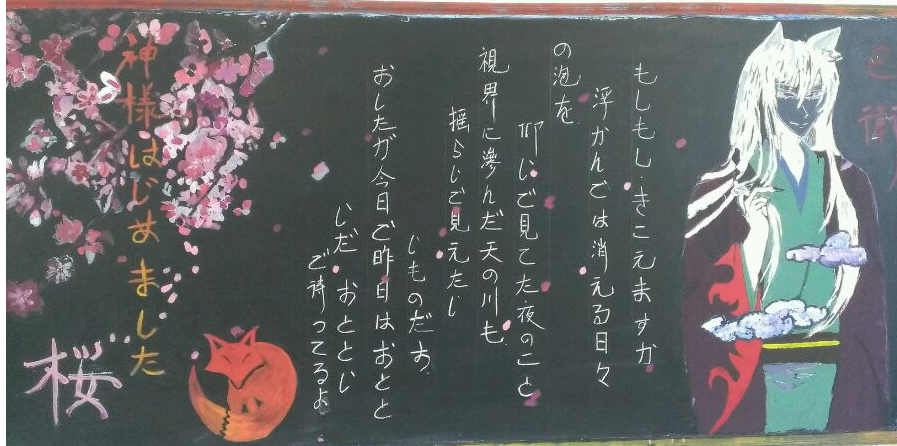 もしもし・きこえますか
浮かんでは消える日々
の泡を
仰じで見てた夜のこと
視界に滲んだ天の川も
揺らじで見えたじ
じものだす
おしたが今日ご昨日はおとと
じだ おととじ
ご待ってるよ
神様はじめました
桜